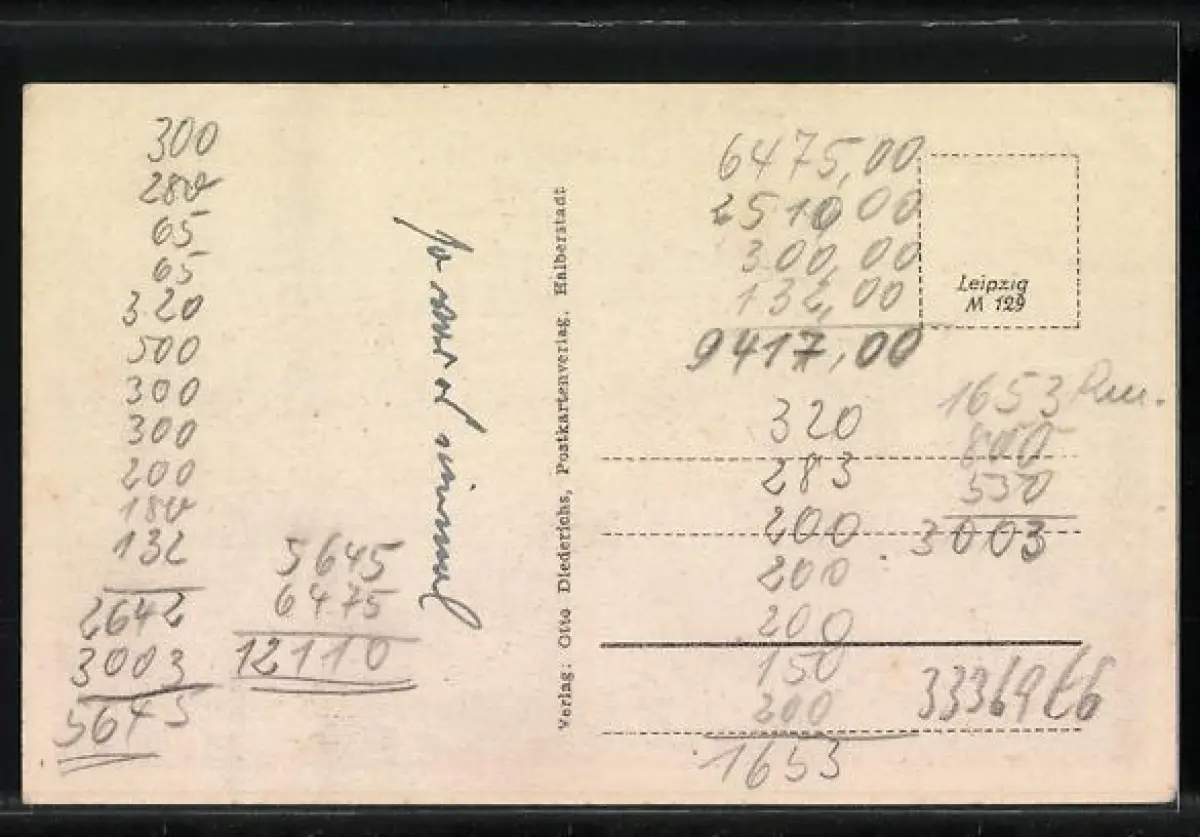 300
280
65
65
320
500
300
300
200
180
132
2642
3003
5645
5645
6475
12110
so war es einmal
Verlag: Otto Diederichs, Postkartenverlag, Halberstadt
6475,00
2510,00
300,00
132,00
9417,00
Leipzig
M 129
320
283
200
200
200
150
200
1653
1653 Rm.
800
550
3003
33369